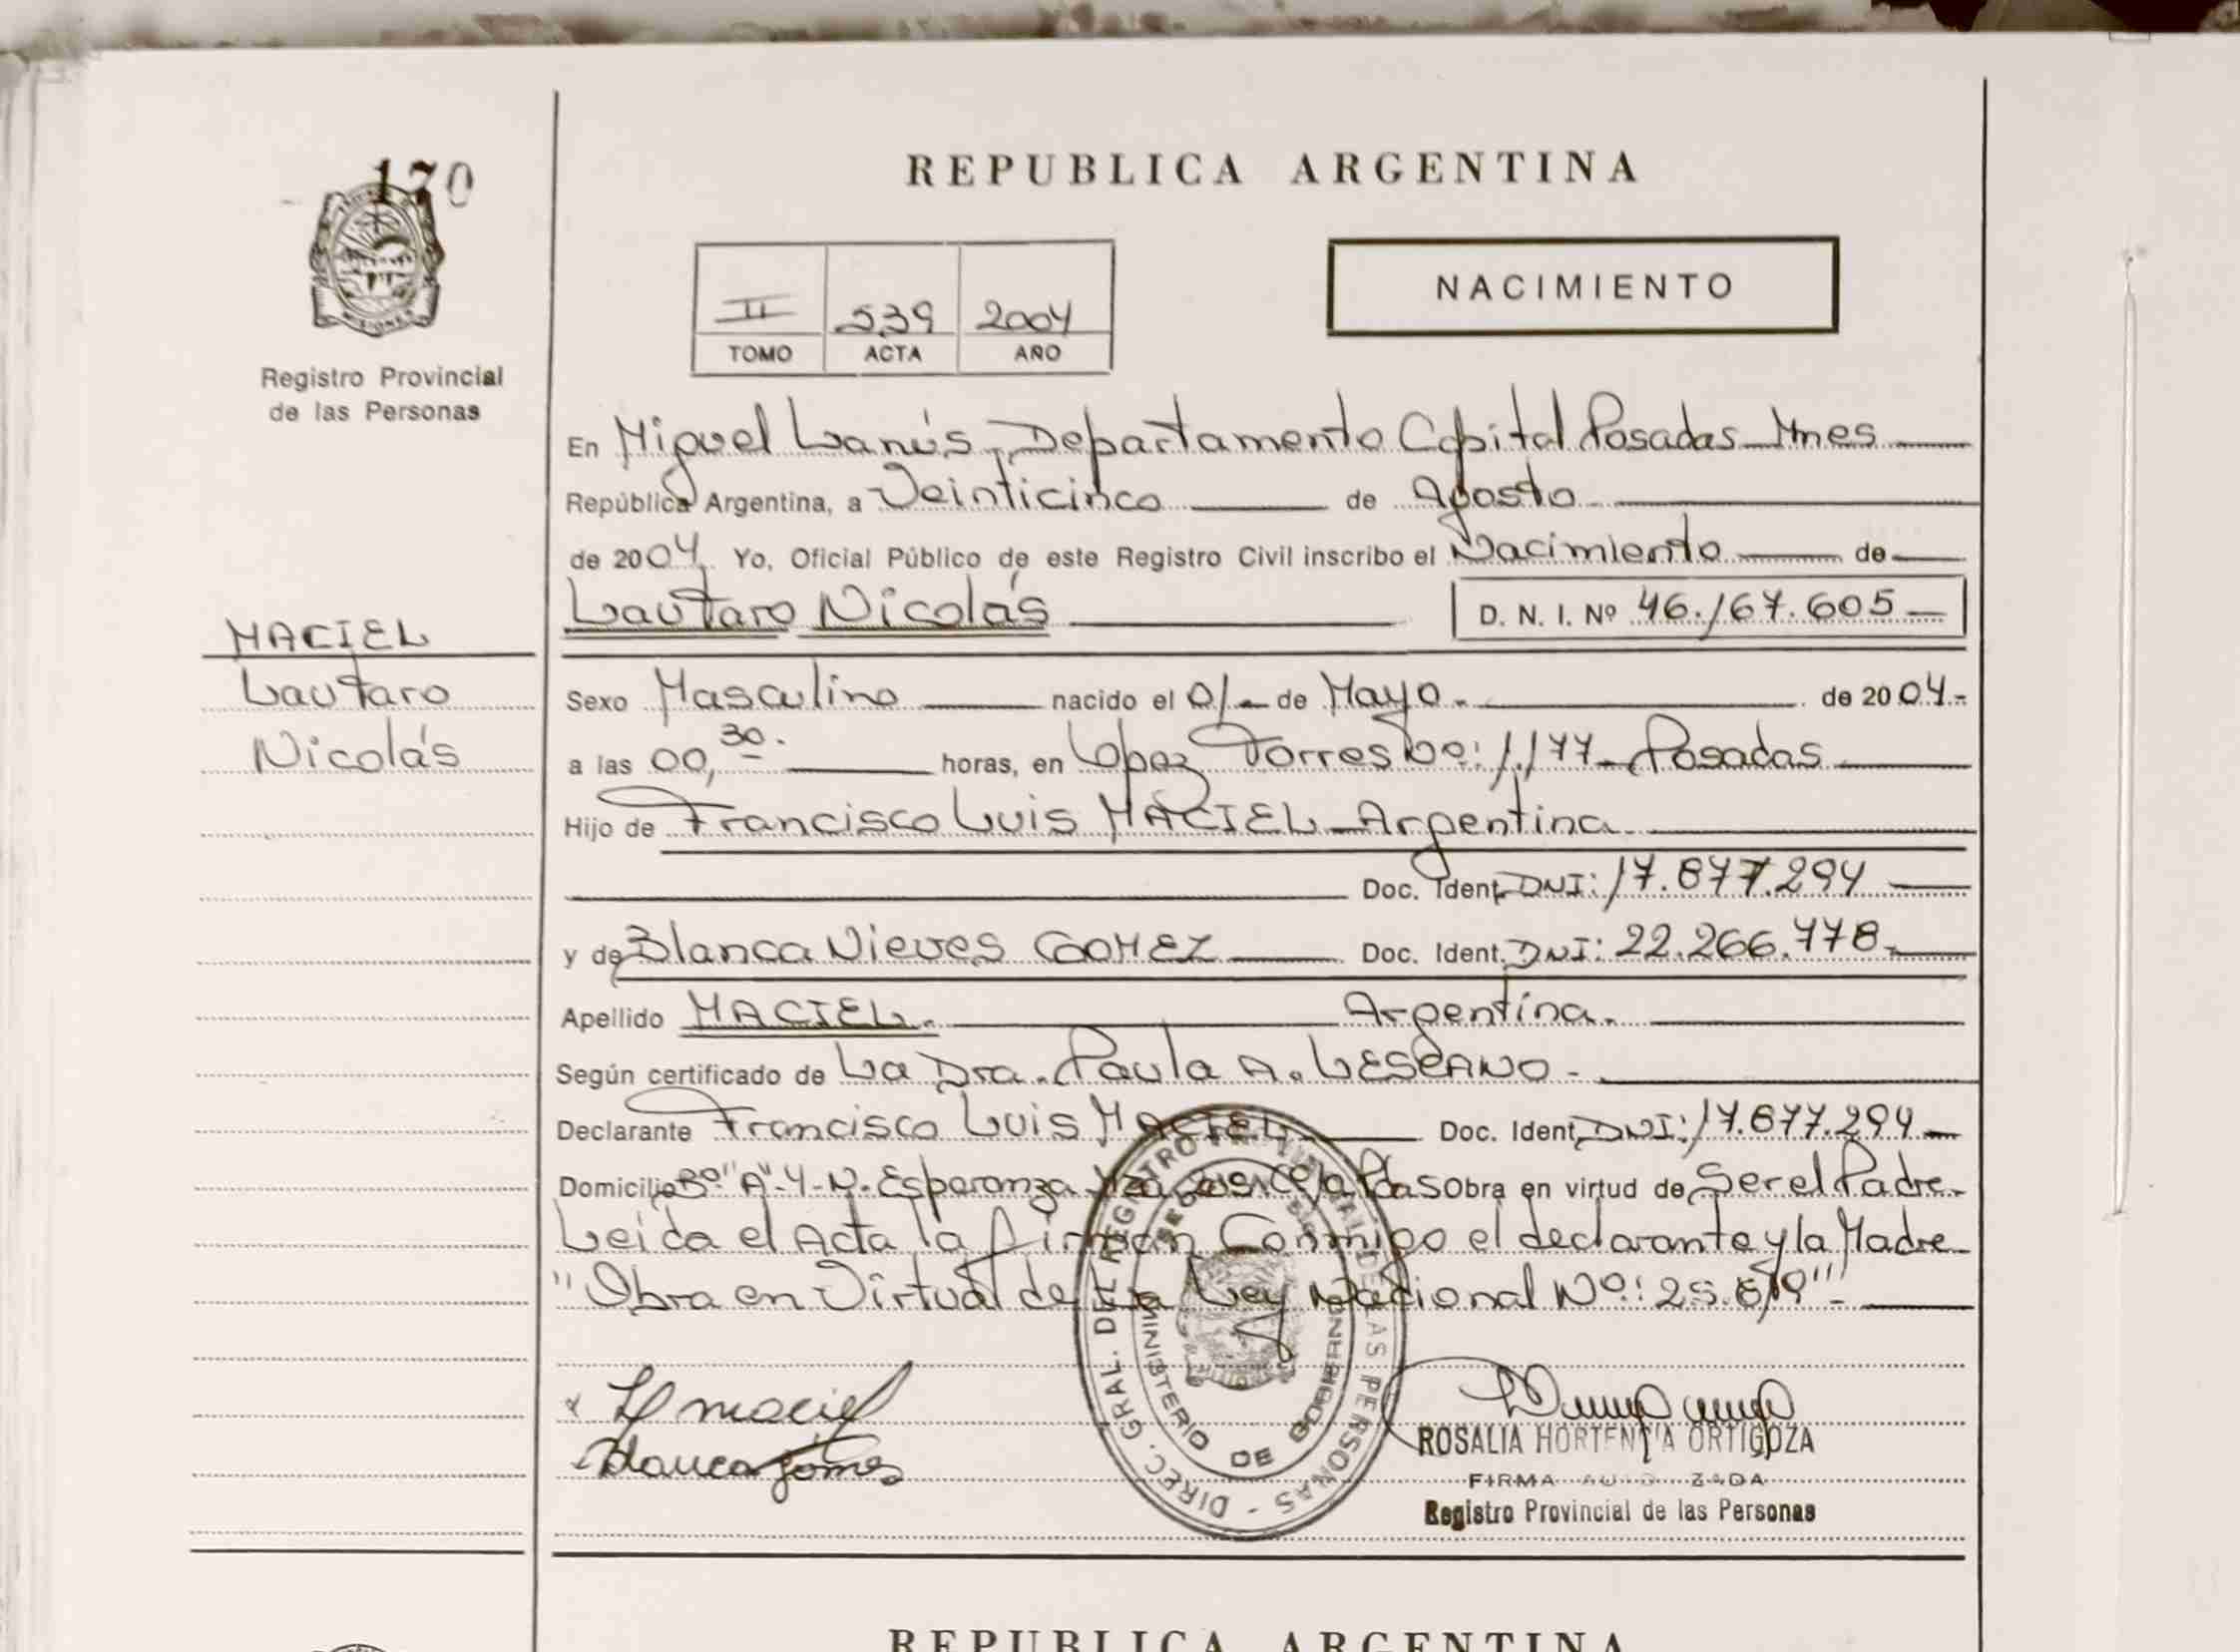 170
MISIONES
Registro Provincial
de las Personas
MACIEL
Lautaro
Nicolás
REPUBLICA ARGENTINA
II 539 2004
TOMO ACTA AÑO
NACIMIENTO
En Miguel Lanús, Departamento Capital Posadas Mnes
República Argentina, a Veinticinco de Agosto
de 2004. Yo, Oficial Público de este Registro Civil inscribo el Nacimiento de
Lautaro Nicolás D. N. I. Nº 46.167.605
Sexo Masculino nacido el 01 de Mayo. de 2004.-
a las 00,30. horas, en López Torres Nº: 1.177 Posadas
Hijo de Francisco Luis MACIEL Argentina
Doc. Ident. DNI: 17.877.294
y de Blanca Nieves GOMEZ Doc. Ident. DNI: 22.266.778.
Apellido MACIEL. Argentina.
Según certificado de La Dra. Paula A. LESCANO.
Declarante Francisco Luis MACIEL Doc. Ident. DNI: 17.877.294
Domicilio Bº "A"-4-N. Esperanza Pdas Obra en virtud de Ser el Padre
Leida el Acta la firman Conmigo el declarante y la Madre
"Obra en Virtud de La Ley Nacional Nº: 25.819"
maciel
Blanca Gomes
DIREC. GRAL. DEL REGISTRO PROVINCIAL DE LAS PERSONAS
MINISTERIO DE GOBIERNO
ROSALIA HORTENCIA ORTIGOZA
FIRMA AUTORIZADA
Registro Provincial de las Personas
REPUBLICA ARGENTINA